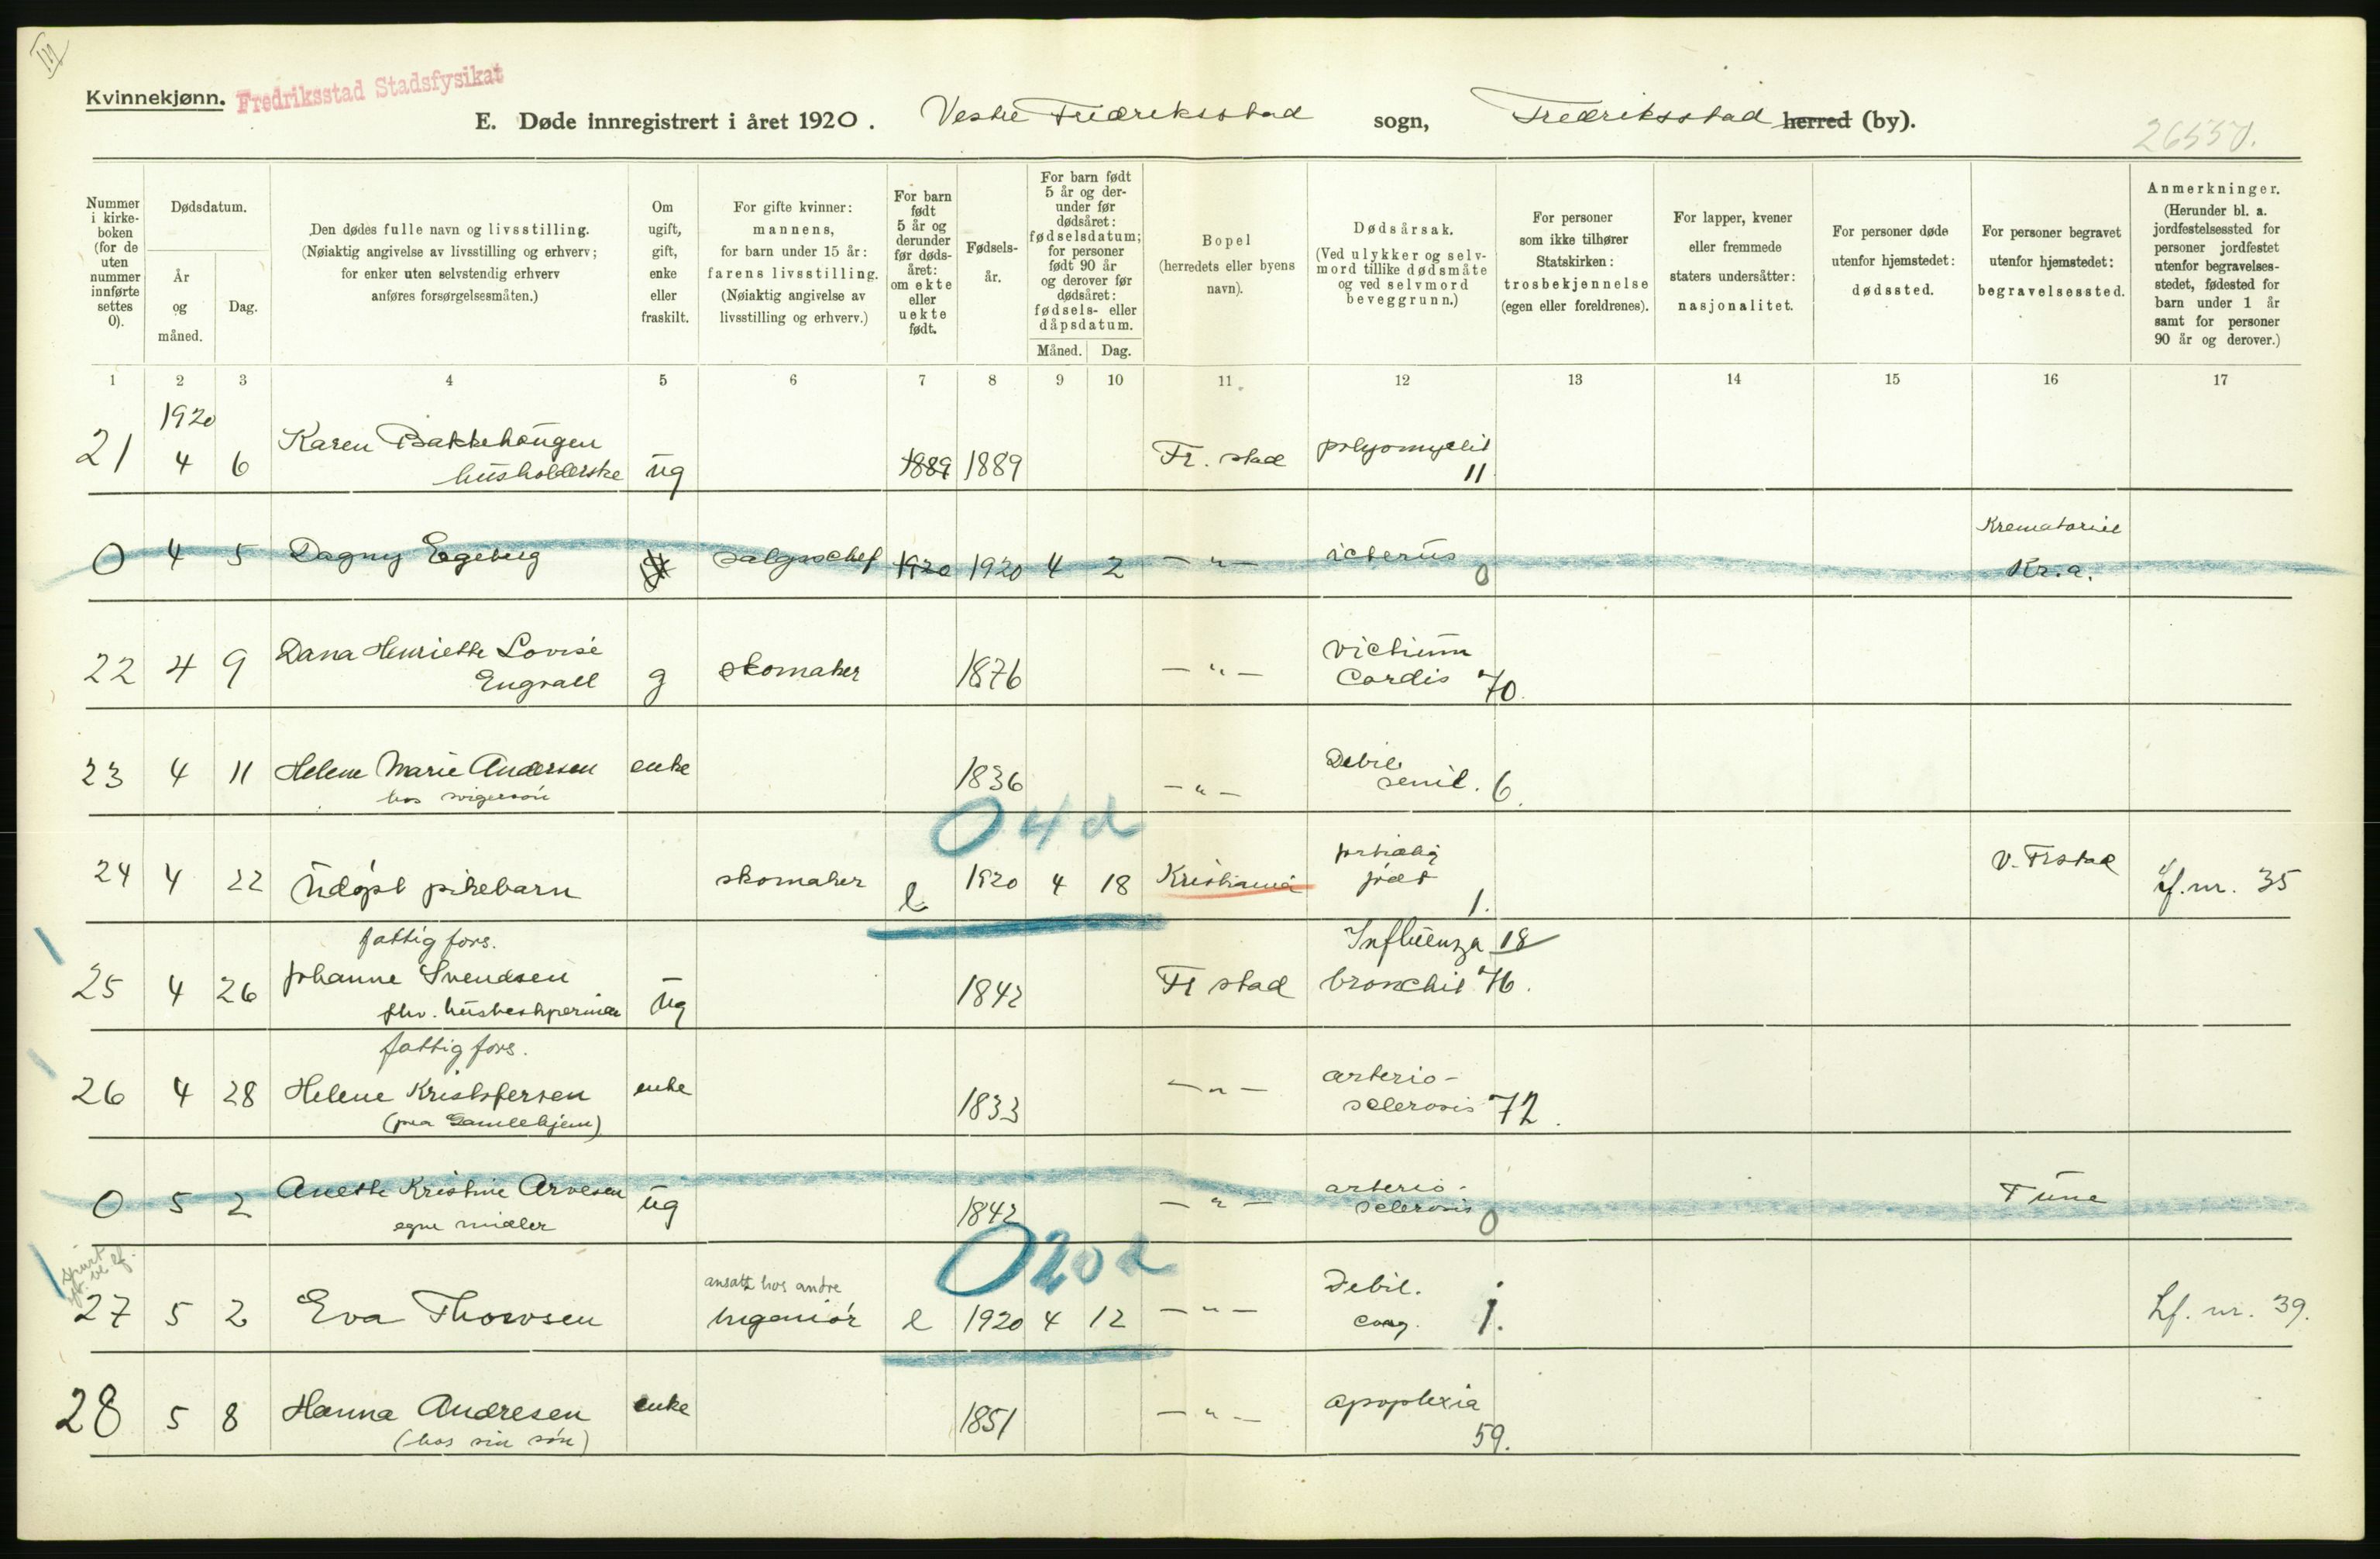 III
Kvinnekjønn. Fredriksstad Stadsfysikat
E. Døde innregistrert i året 1920. Vestre Fredriksstad sogn, Fredriksstad herred (by).
26550.
Nummer i kirke-boken (for de uten nummer innførte settes 0).
Dødsdatum.
År og måned.
Dag.
Den dødes fulle navn og livsstilling.
(Nøiaktig angivelse av livsstilling og erhverv;
for enker uten selvstendig erhverv
anføres forsørgelsesmåten.)
Om ugift, gift, enke eller fraskilt.
For gifte kvinner:
mannens,
for barn under 15 år:
farens livsstilling.
(Nøiaktig angivelse av
livsstilling og erhverv.)
For barn født 5 år og derunder før døds-året: om ekte eller uekte født.
Fødsels-år.
For barn født 5 år og der-under før dødsåret: fødselsdatum; for personer født 90 år og derover før dødsåret: fødsels- eller dåpsdatum.
Måned. Dag.
Bopel
(herredets eller byens navn).
Dødsårsak.
(Ved ulykker og selv-mord tillike dødsmåte og ved selvmord beveggrunn.)
For personer
som ikke tilhører
Statskirken:
trosbekjennelse
(egen eller foreldrenes).
For lapper, kvener
eller fremmede
staters undersåtter:
nasjonalitet.
For personer døde
utenfor hjemstedet:
dødssted.
For personer begravet
utenfor hjemstedet:
begravelsessted.
Anmerkninger.
(Herunder bl. a.
jordfestelsessted for
personer jordfestet
utenfor begravelses-
stedet, fødested for
barn under 1 år
samt for personer
90 år og derover.)
1 2 3 4 5 6 7 8 9 10 11 12 13 14 15 16 17
1920
21 4 6 Karen Bakkehaugen ug 1889 1889 Fr. stad polyomyelit
husholderske 11
0 4 5 Dagny Egeberg salgschef 1920 1920 4 2 — " — icterus 0 Krematoriet
Kr.a.
22 4 9 Dana Henriette Lovise g skomaker 1876 — " — victium
Engvall Cordis 70.
23 4 11 Helene Marie Andersen enke 1836 — " — Debil.
hos svigersøn senil. 6.
0 4 d
24 4 22 Udøpt pikebarn skomaker 1920 4 18 Kristiania V. Frstad lf. nr. 35
født 1.
fattigfors. Influenza 18
25 4 26 Johanne Svendsen ug 1842 Fr stad bronchit 76.
fhv. husbestyrerinde
fattigfors.
26 4 28 Helene Kristofersen enke 1833 — " — arterio-
(paa Gamlehjem) sclerosis 72.
0 5 2 Anette Kristine Arvesen ug 1842 — " — arterio- Tune
egne midler sclerosis 0
0 20 d
27 5 2 Eva Thorvsen ansatt hos andre
Ingeniør 1920 4 12 — " — Debil. Lf. nr. 39.
cong. 1.
28 5 8 Hanna Andresen enke 1851 — " — apoplexia
(hos sin søn) 59.